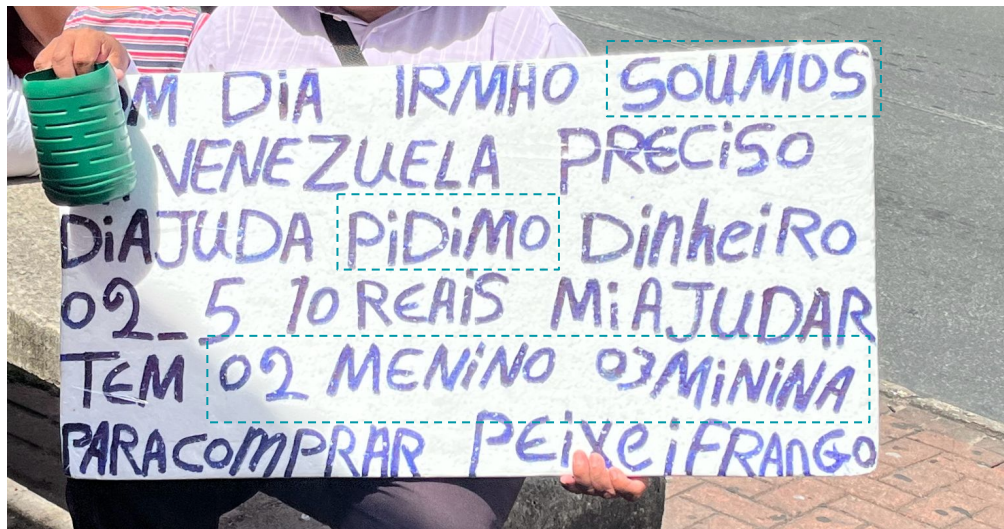 M DiA IRMHO SOUMOS
VENEZUELA PRECiSO
DiAJUDA PiDiMO DinheiRO
02_ 5 10 REAiS MiAJUDAR
TEM 02 MENiNO 03MiNiNA
PARACOMPRAR PEiXe iFRANGO